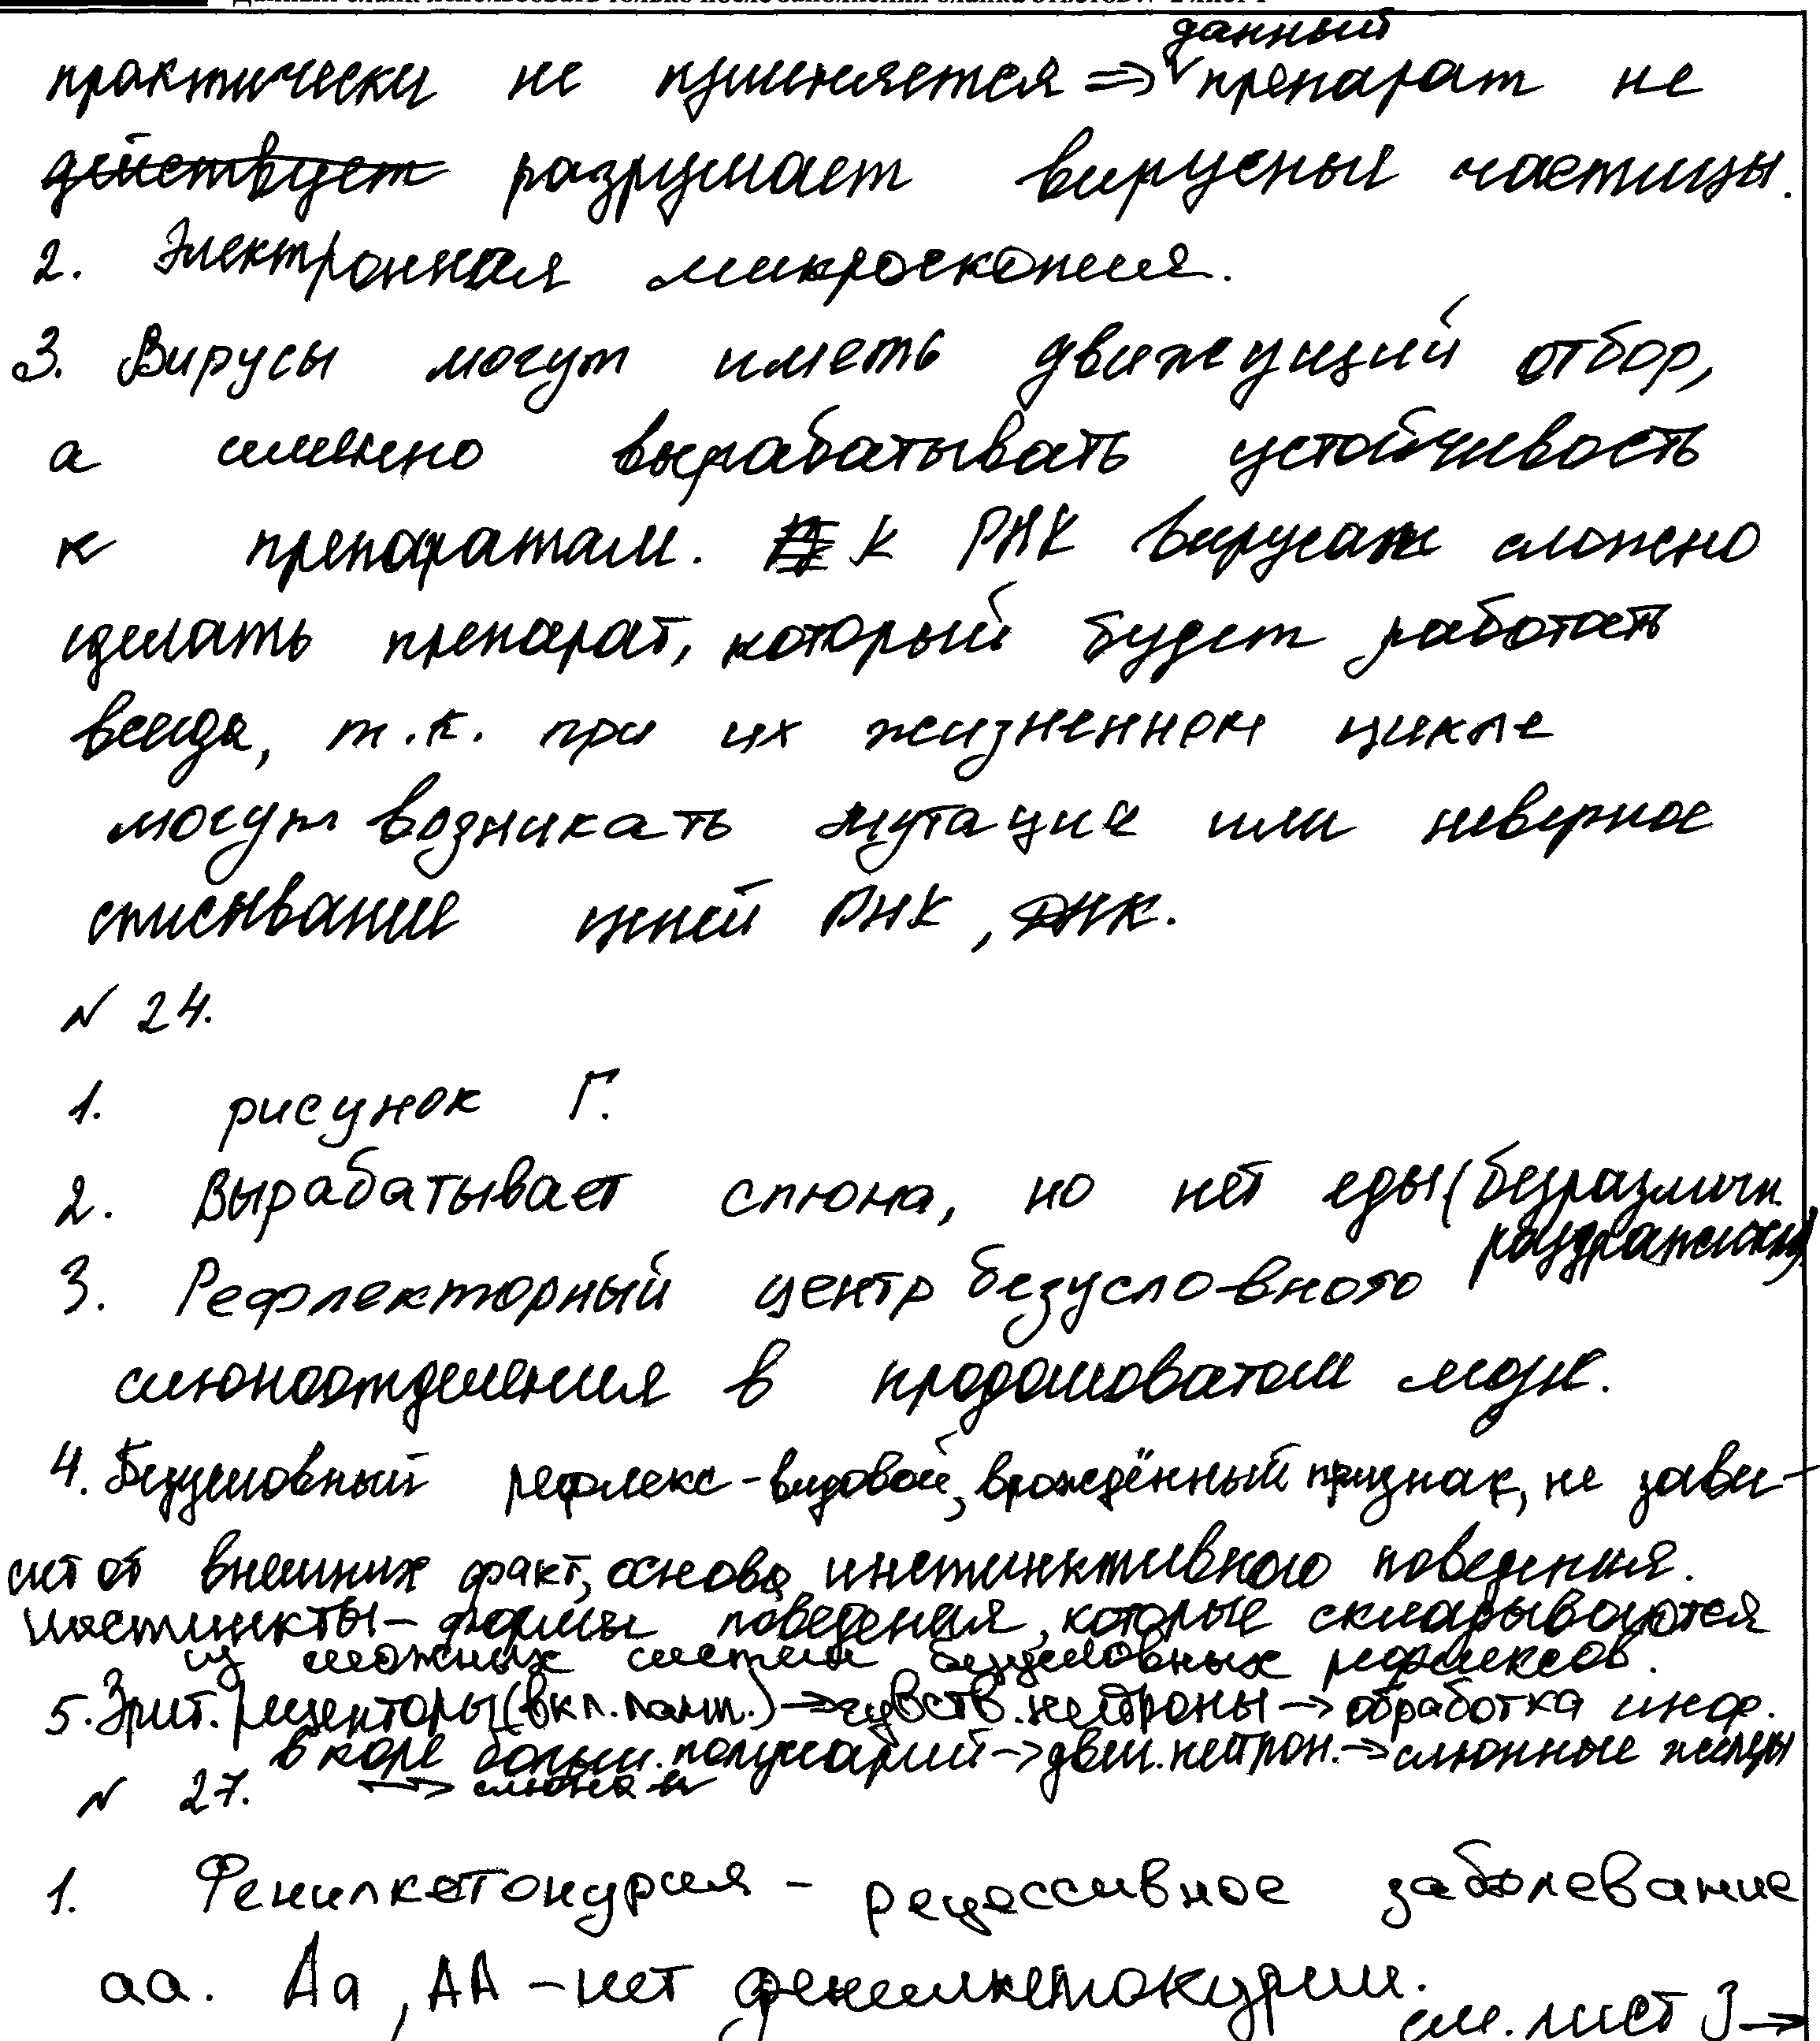 данный
практически не применяется => препарат не
действует разрушает вирусные частицы.
2. Электронная микроскопия.
3. Вирусы могут иметь движущий отбор,
а именно вырабатывать устойчивость
к препаратам. К РНК вирусам сложно
сделать препарат, который будет работать
всегда, т.к. при их жизненном цикле
могут возникать мутации или неверное
списывание цепей РНК, ДНК.
N 24.
1. рисунок Г.
2. Вырабатывает слюна, но нет еды (безразличн.
раздражитель)
3. Рефлекторный центр безусловного
слюноотделения в продолговатом мозк.
4. Безусловный рефлекс - видовой, врождённый признак, не зави-
сит от внешних факт, основа инстинктивного поведения.
Инстинкты - формы поведения, которые складываются
из сложных систем безусловных рефлексов.
5. Зрит. рецепторы (вкл. ламп.) → чувств. нейроны → обработка инф.
в коре больш. полушарий → двиг. нейрон. → слюнные железы
→ слюна
N 27.
1. Фенилкетонурия - рецессивное заболевание
аа. Аа, АА - нет фенилкетокурии.
см. лист 3 →